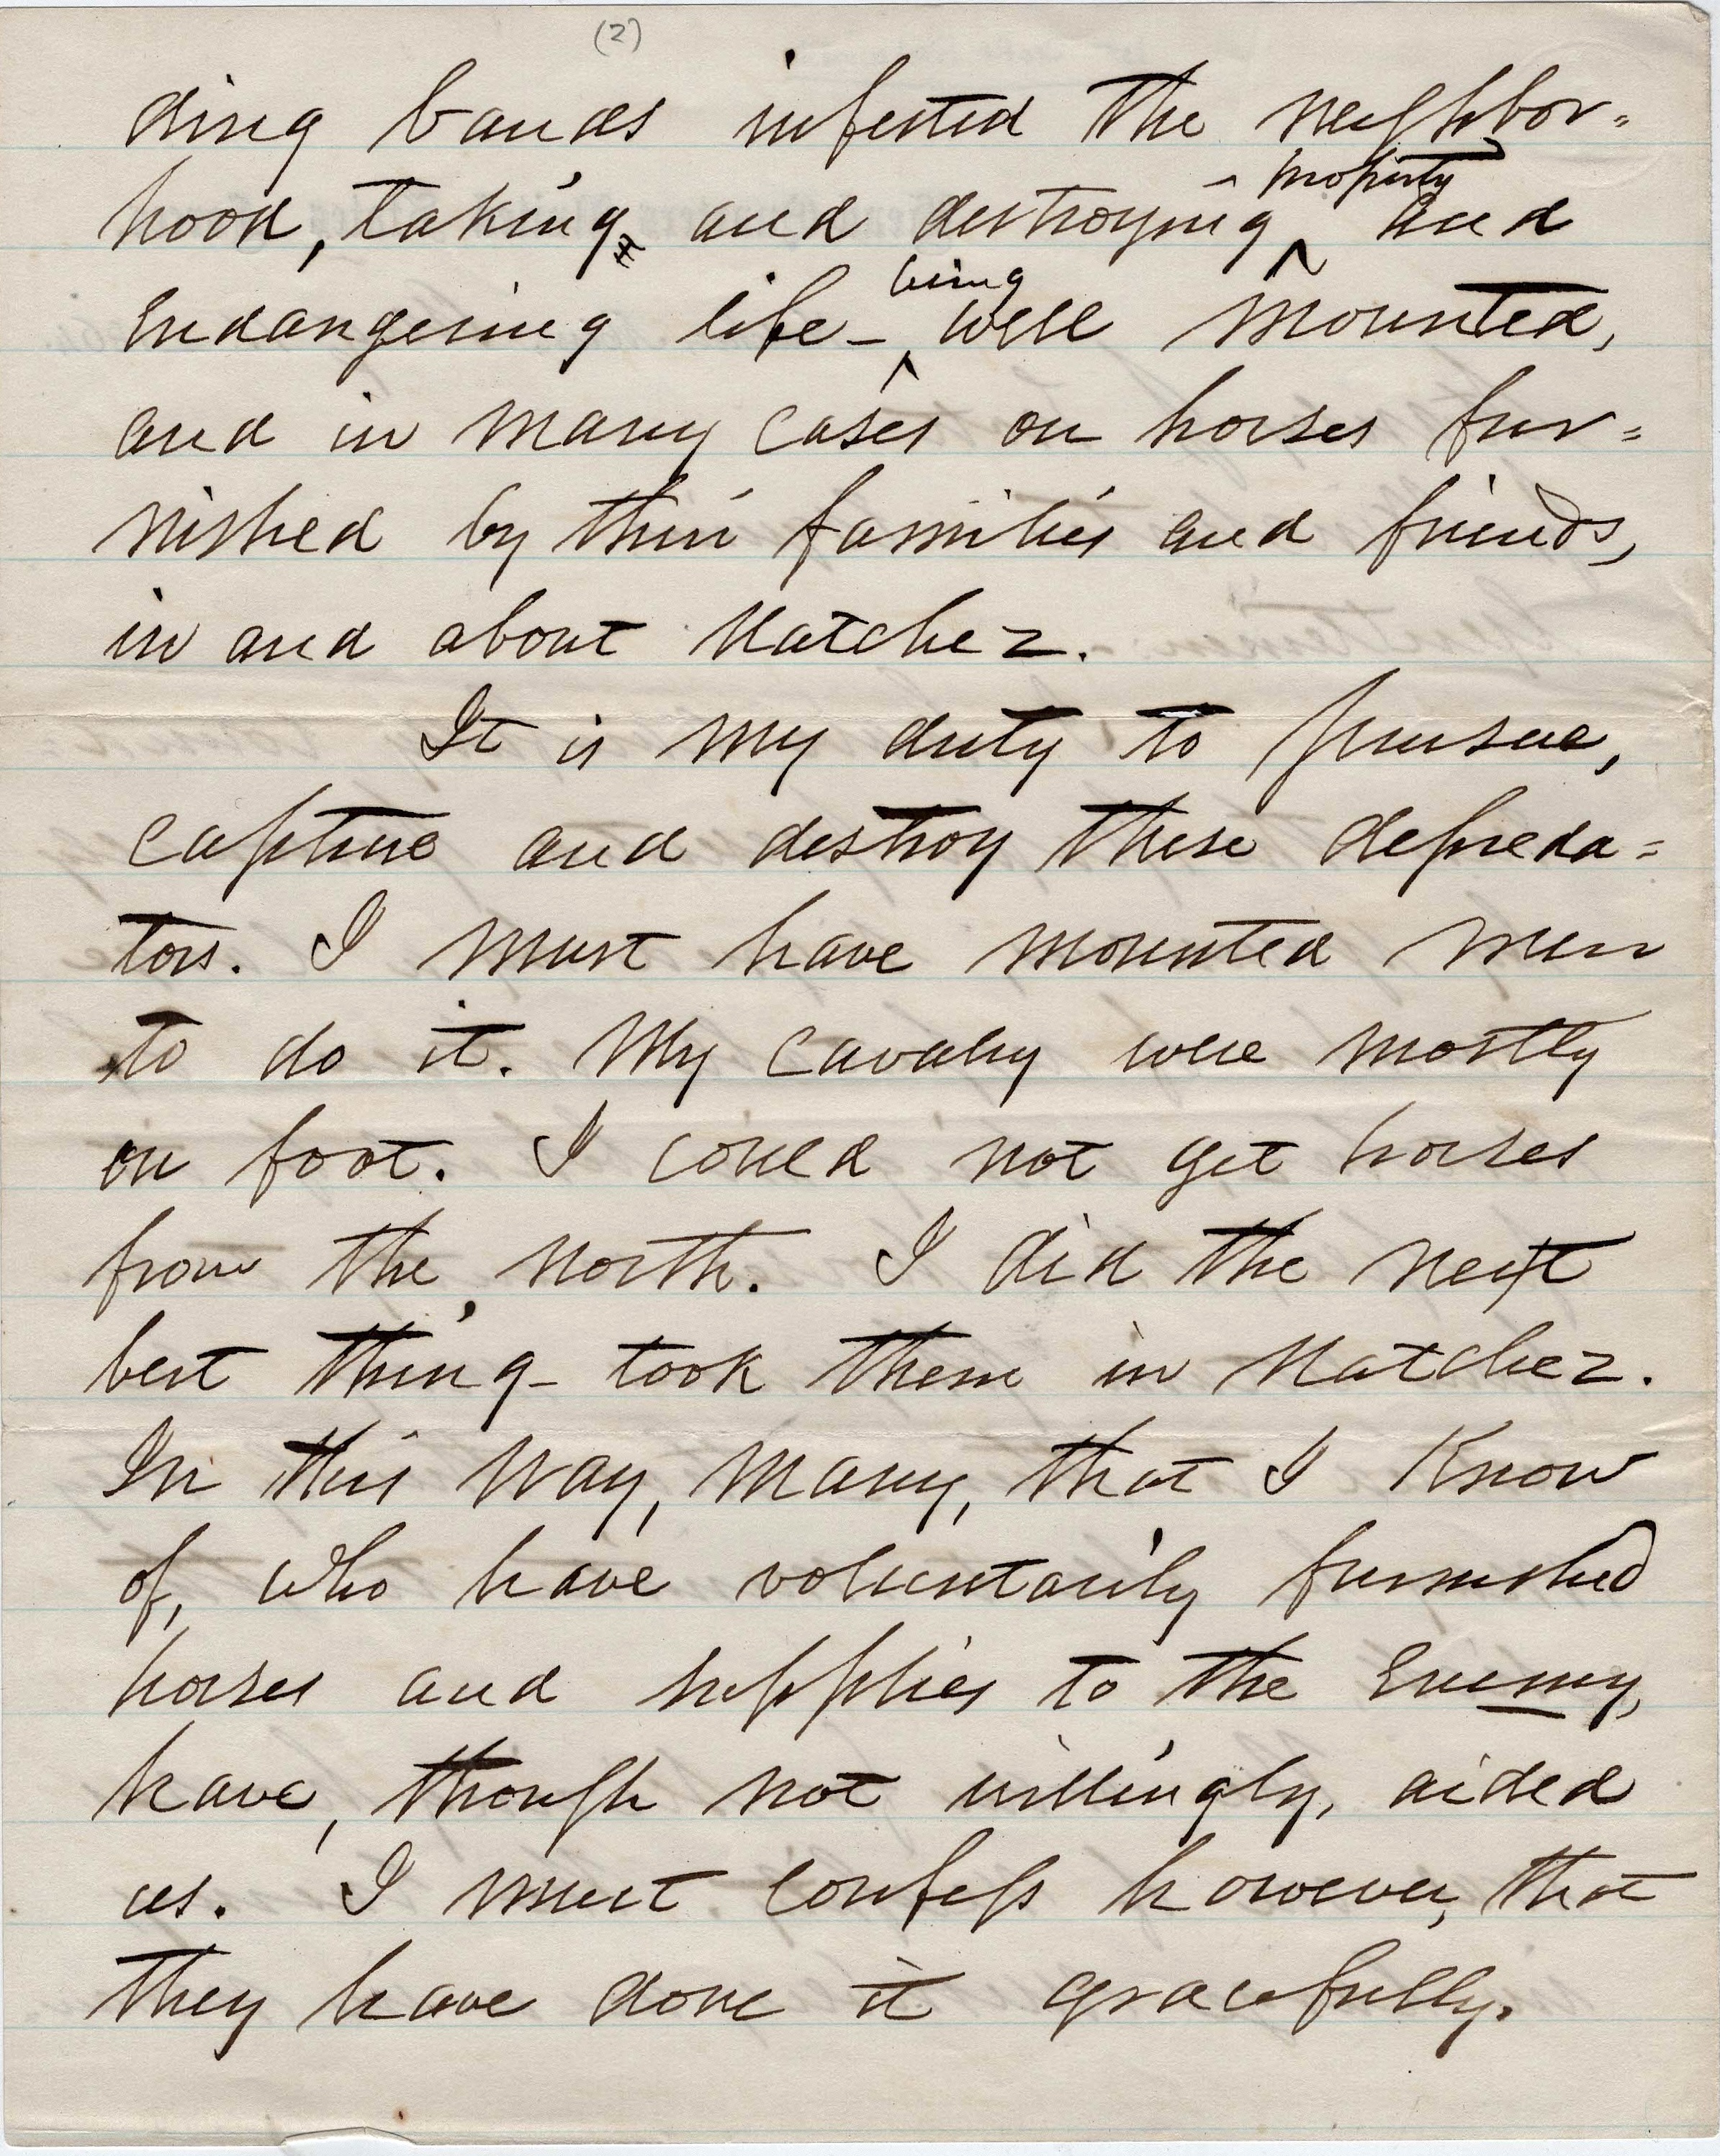 (2)
ding bands infested the neighbor=
hood, taking and destroying ^property and
Endangering life - ^being well mounted,
and in many cases on horses fur=
nished by their families and friends,
in and about Natchez.
It is my duty to pursue,
capture and destroy these depreda=
tors. I must have mounted men
to do it. My cavalry were mostly
on foot. I could not get horses
from the north. I did the next
best thing - took them in Natchez.
In this way, many, that I Know
of, who have voluntarily furnished
horses and supplies to the Enemy,
have, though not willingly, aided
us. I must confess however, that
they have done it gracefully.